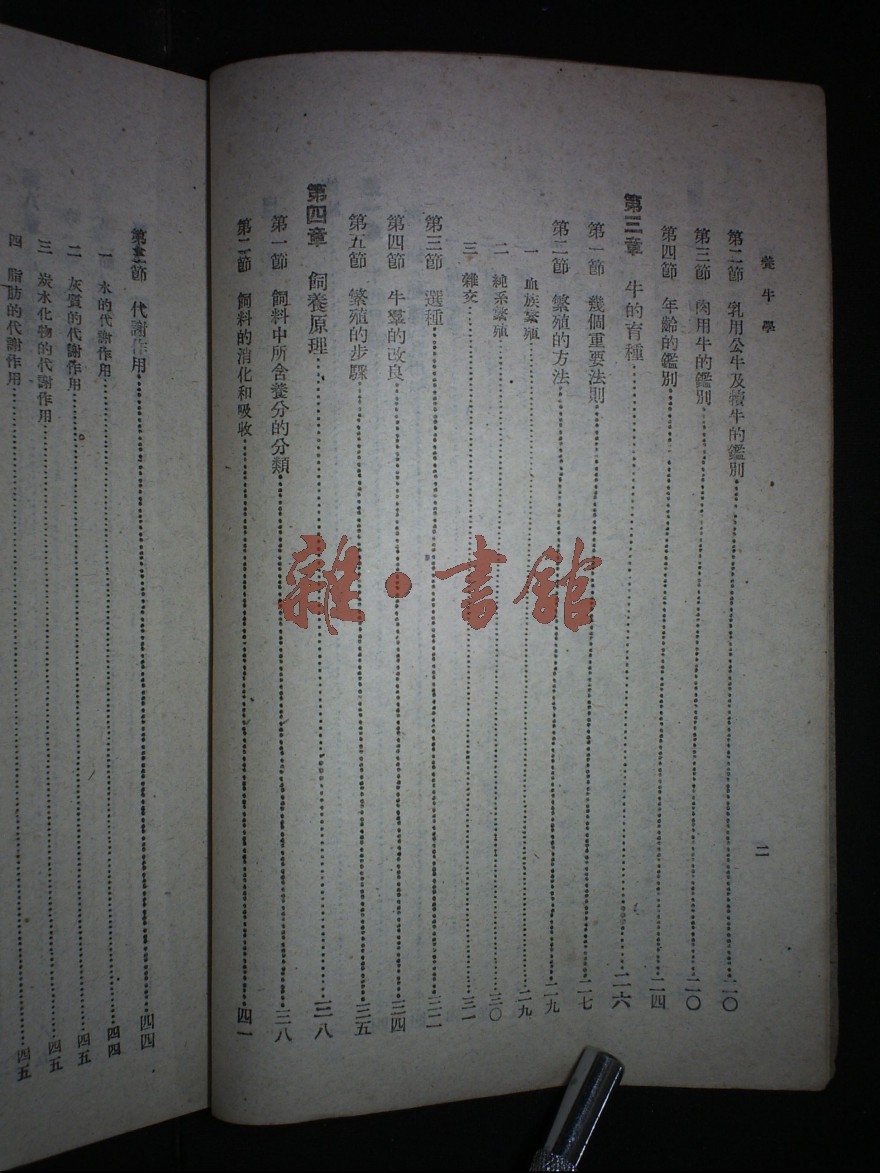 養牛學
二
第二節 乳用公牛及犢牛的鑑別 二〇
第三節 肉用牛的鑑別 二〇
第四節 年齡的鑑別 二四
第三章 牛的育種 二六
第一節 幾個重要法則 二七
第二節 繁殖的方法 二九
一 血族繁殖 二九
二 純系繁殖 三〇
三 雜交 三一
第三節 選種 三二
第四節 牛羣的改良 三四
第五節 繁殖的步驟 三五
第四章 飼養原理 三八
第一節 飼料中所含養分的分類 三八
第二節 飼料的消化和吸收 四一
第三節 代謝作用 四四
一 水的代謝作用 四四
二 灰質的代謝作用 四五
三 炭水化物的代謝作用 四五
四 脂肪的代謝作用 四五
雜·書館